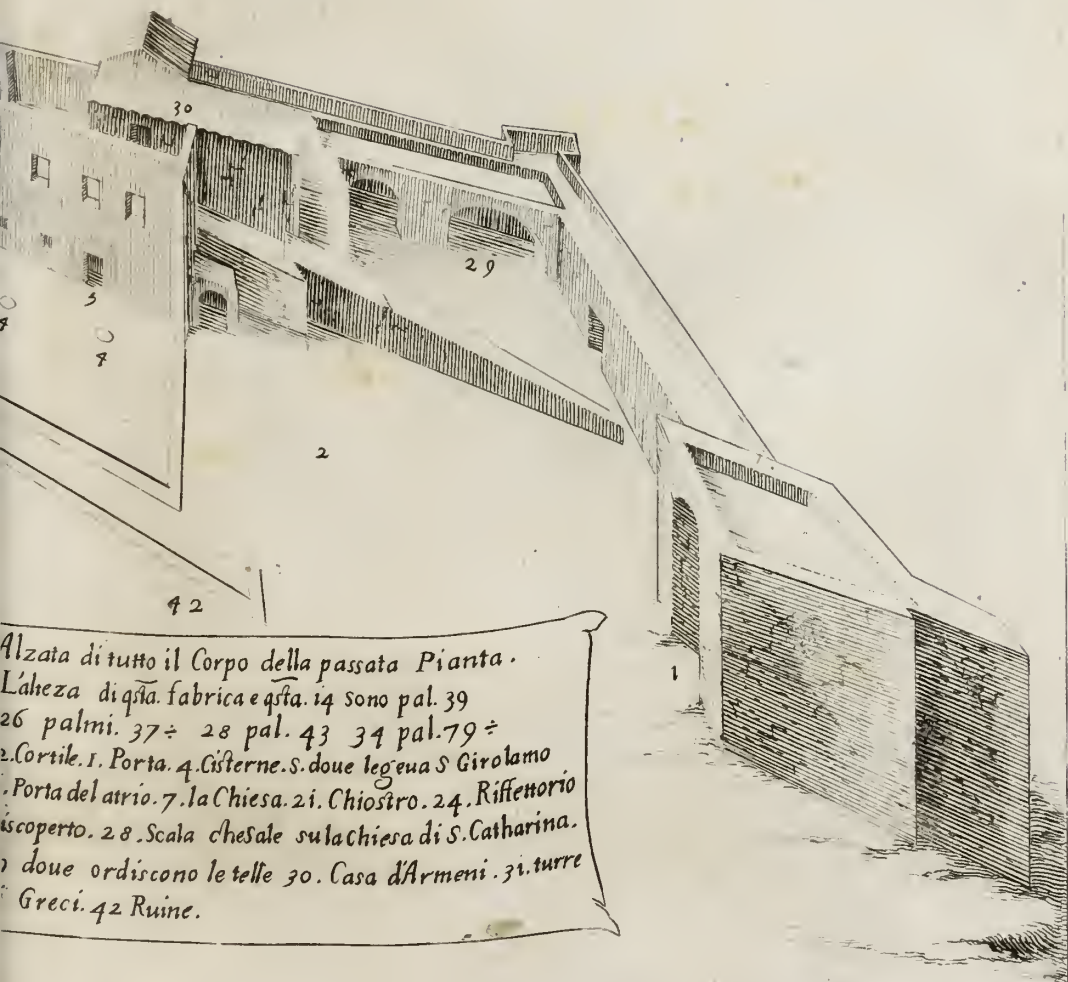 30
29
5
4
4
2
42
1
Alzata di tutto il Corpo della passata Pianta.
L'alteza di qsta. fabrica e qsta. 14 sono pal. 39
26 palmi. 37÷ 28 pal. 43 34 pal.79÷
2.Cortile.1. Porta.4.Cisterne.5.doue legeua S Girolamo
.Porta del atrio.7.la Chiesa.21. Chiostro.24.Riffettorio
iscoperto.28.Scala cheSale su la chiesa di S.Catharina.
doue ordiscono le telle 30. Casa d'Armeni.31.turre
Greci.42 Ruine.